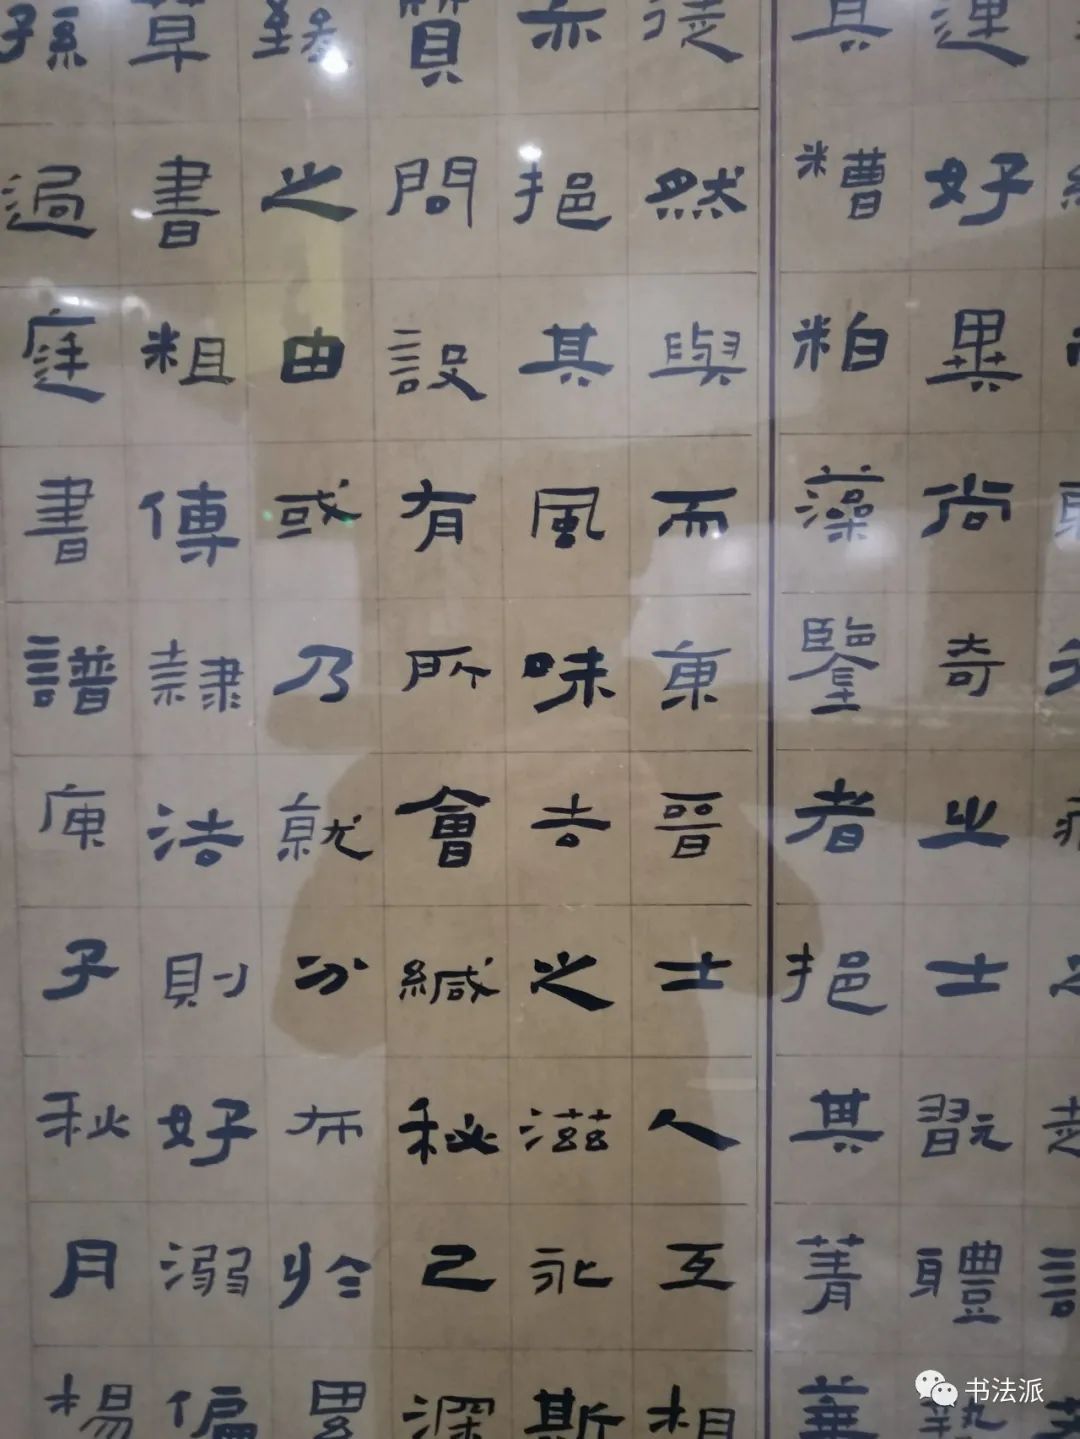 運好異尚奇之士翫體勢
其糟粕藻鑒者挹其菁華
徒然與而東晉士人互相
亦挹其風味去之滋永斯
質問設有所會緘秘已深
致之由或乃就分布於累
草書粗傳隸法則好溺偏
孫過庭書譜庚子秋月楊
书法派